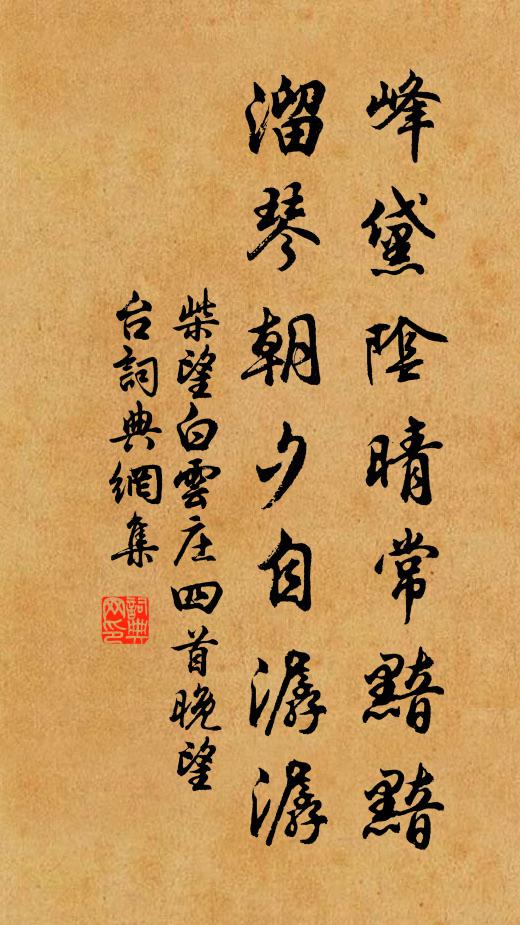 峰黛陰晴常黯黯
溜琴朝夕自潺潺
柴望白雲庄四首晚望
台詞典網集
詞典
网印